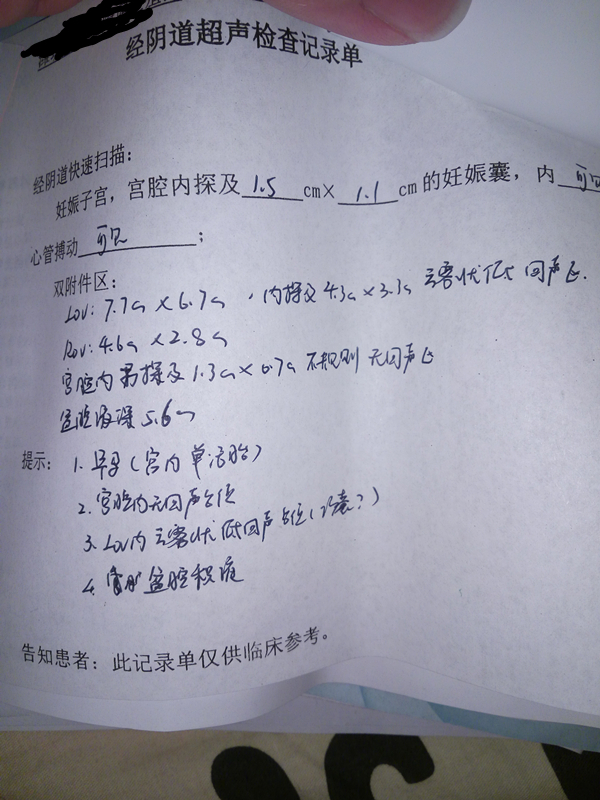 经阴道超声检查记录单
经阴道快速扫描：
妊娠子宫，宫腔内探及 1.5 cm× 1.1 cm的妊娠囊，内 可见
心管搏动 可见 ；
双附件区：
Lov: 7.7cm×6.7cm，内探及4.3cm×3.3cm云雾状低回声区.
Rov: 4.6cm×2.8cm
宫腔内另探及1.3cm×0.7cm不规则无回声区
盆腔液深5.6cm
提示： 1. 早孕（宫内单活胎）
2. 宫腔内无回声占位
3. Lov内云雾状低回声占位（巧囊？）
4. 盆腔积液
告知患者：此记录单仅供临床参考。